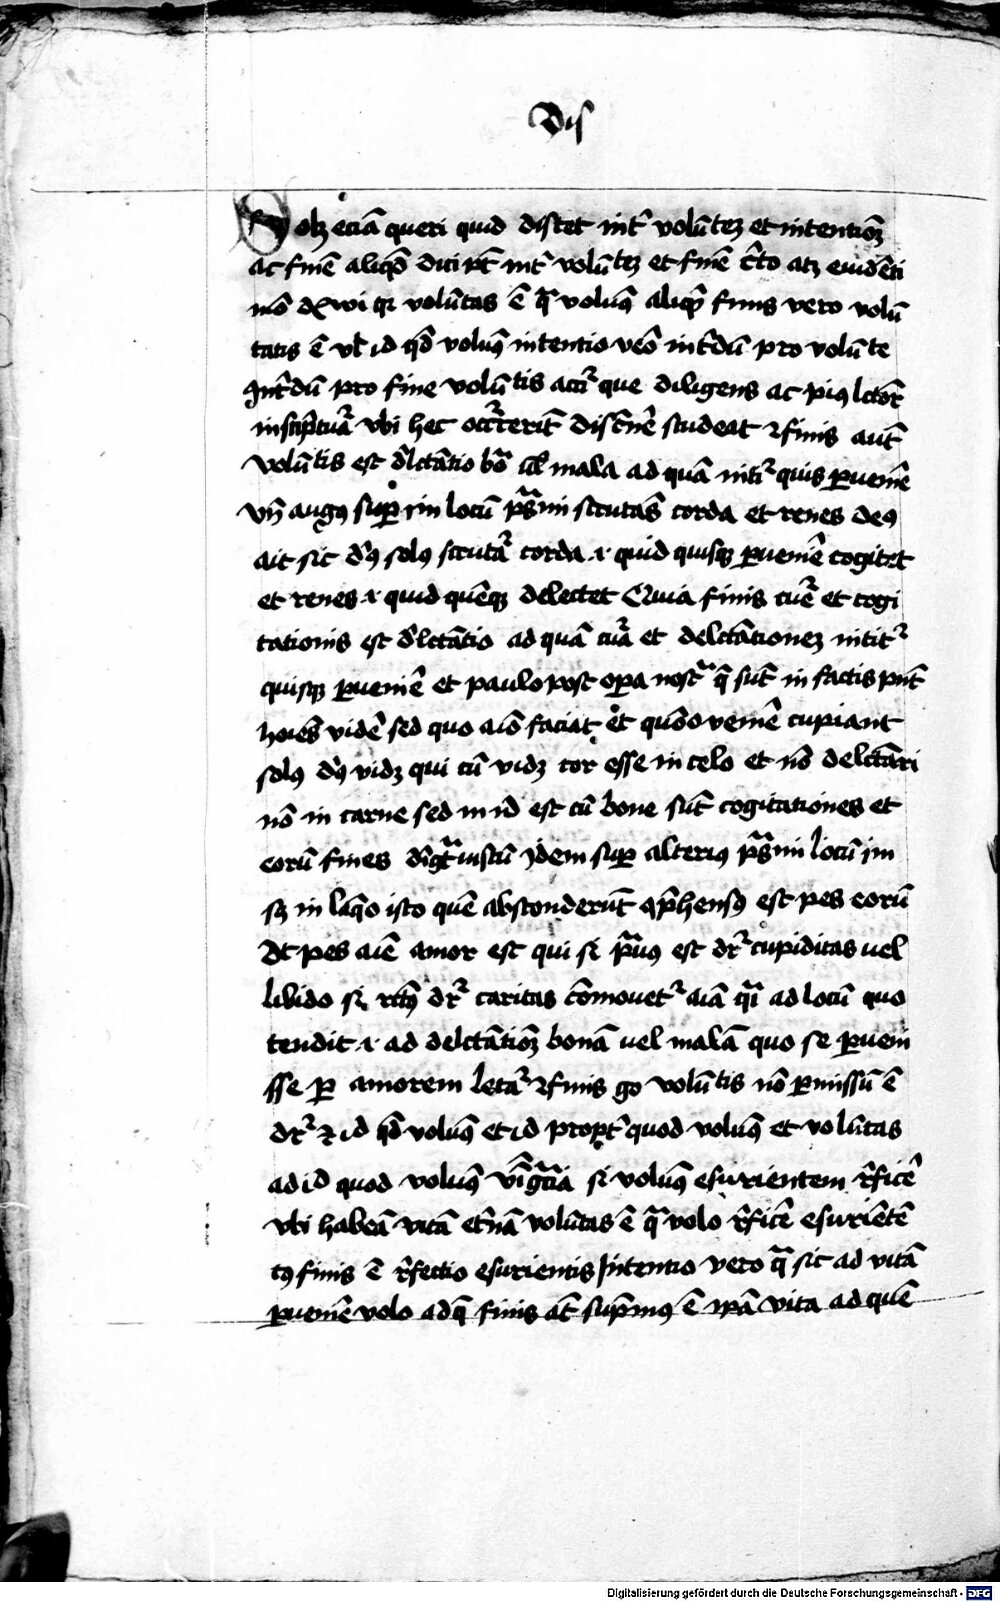 Dis
Solꝫ eciā queri quid distet int̄ volūteꝫ et intentiōꝫ
ac finē aliqn̄ dici pt̄ int̄ volūteꝫ et finē c̄to atꝫ euidēti
mō dr̄wi qꝛ volūtas ē qͣ volumꝰ aliqͩ finis vero volū
tatis ē vl̓ id qd̄ volumꝰ intentio vēo int̄dū pro volūte
Int̄dū pro fine volūtis acciͬ que diligens ac piꝰ lctōr
in scͥptuͣ vbi hec occͬrerīt discͬnē studeat ꝛ finis aūt
volūtis est dl̓ctātio boͣ ul̓ mala ad quā nitiͬ quis ꝑuenīe
vn̄ augꝰ suꝑ im locū pͣsmi scrutās corda et renes deꝰ
ait sic dꝰ solꝰ scrutaͬ corda .i. quid quisqꝫ ꝑuenīe cogitet
et renes .i. quid quēqꝫ delectet Quia finis cuͬe et cogi
tationis est dl̓ctātio ad quā cuͬa et delctātioneꝫ nititͬ
quisqꝫ ꝑuenīe et paulo post oꝑa nostͬa q̄ sūt in factis pn̄t
hoīes vidē sed quo aīo faciat et quōo venīe cupiant
solꝰ dꝰ vidꝫ qui cū vidꝫ cor esse in celo et nō delctāri
nō in carne sed in n̄d est cū bone sūt cogitationes et
eorū fines dīgͭ iustū Idem suꝑ alterius pͣsmi locū im
sꝫ in laq̄o isto quē absconderūt ꝯp̄hensꝰ est pes eorū
Dt pes aīe amor est qui si pͣuꝰ est drͬ cupiditas uel
libido si rctꝰ drͬ caritas cōmouetͬ aīa qͣi ad locū quo
tendit .i. ad delctātiōꝫ bonā uel malā quo se ꝑueni
sse ꝑ amorem letaͬ ꝛ finis go volūtis nō ꝑmissū ē
drͬ ⁊ id qd̄ volumꝰ et id propt̄ quod volumꝰ et volūtas
ad id quod volumꝰ vl̓gͣcīa si volumꝰ esurientem r̄ficē
vbi habeā vitā et̄nā volūtas ē qͣ volo r̄ficē esuriētē
cꝰ finis ē r̄fectio esurientis Intentio vero qͣ sic ad vitā
ꝑuenīe volo adq̄ finis at̄ supͬmꝰ ē ipā vita ad quē